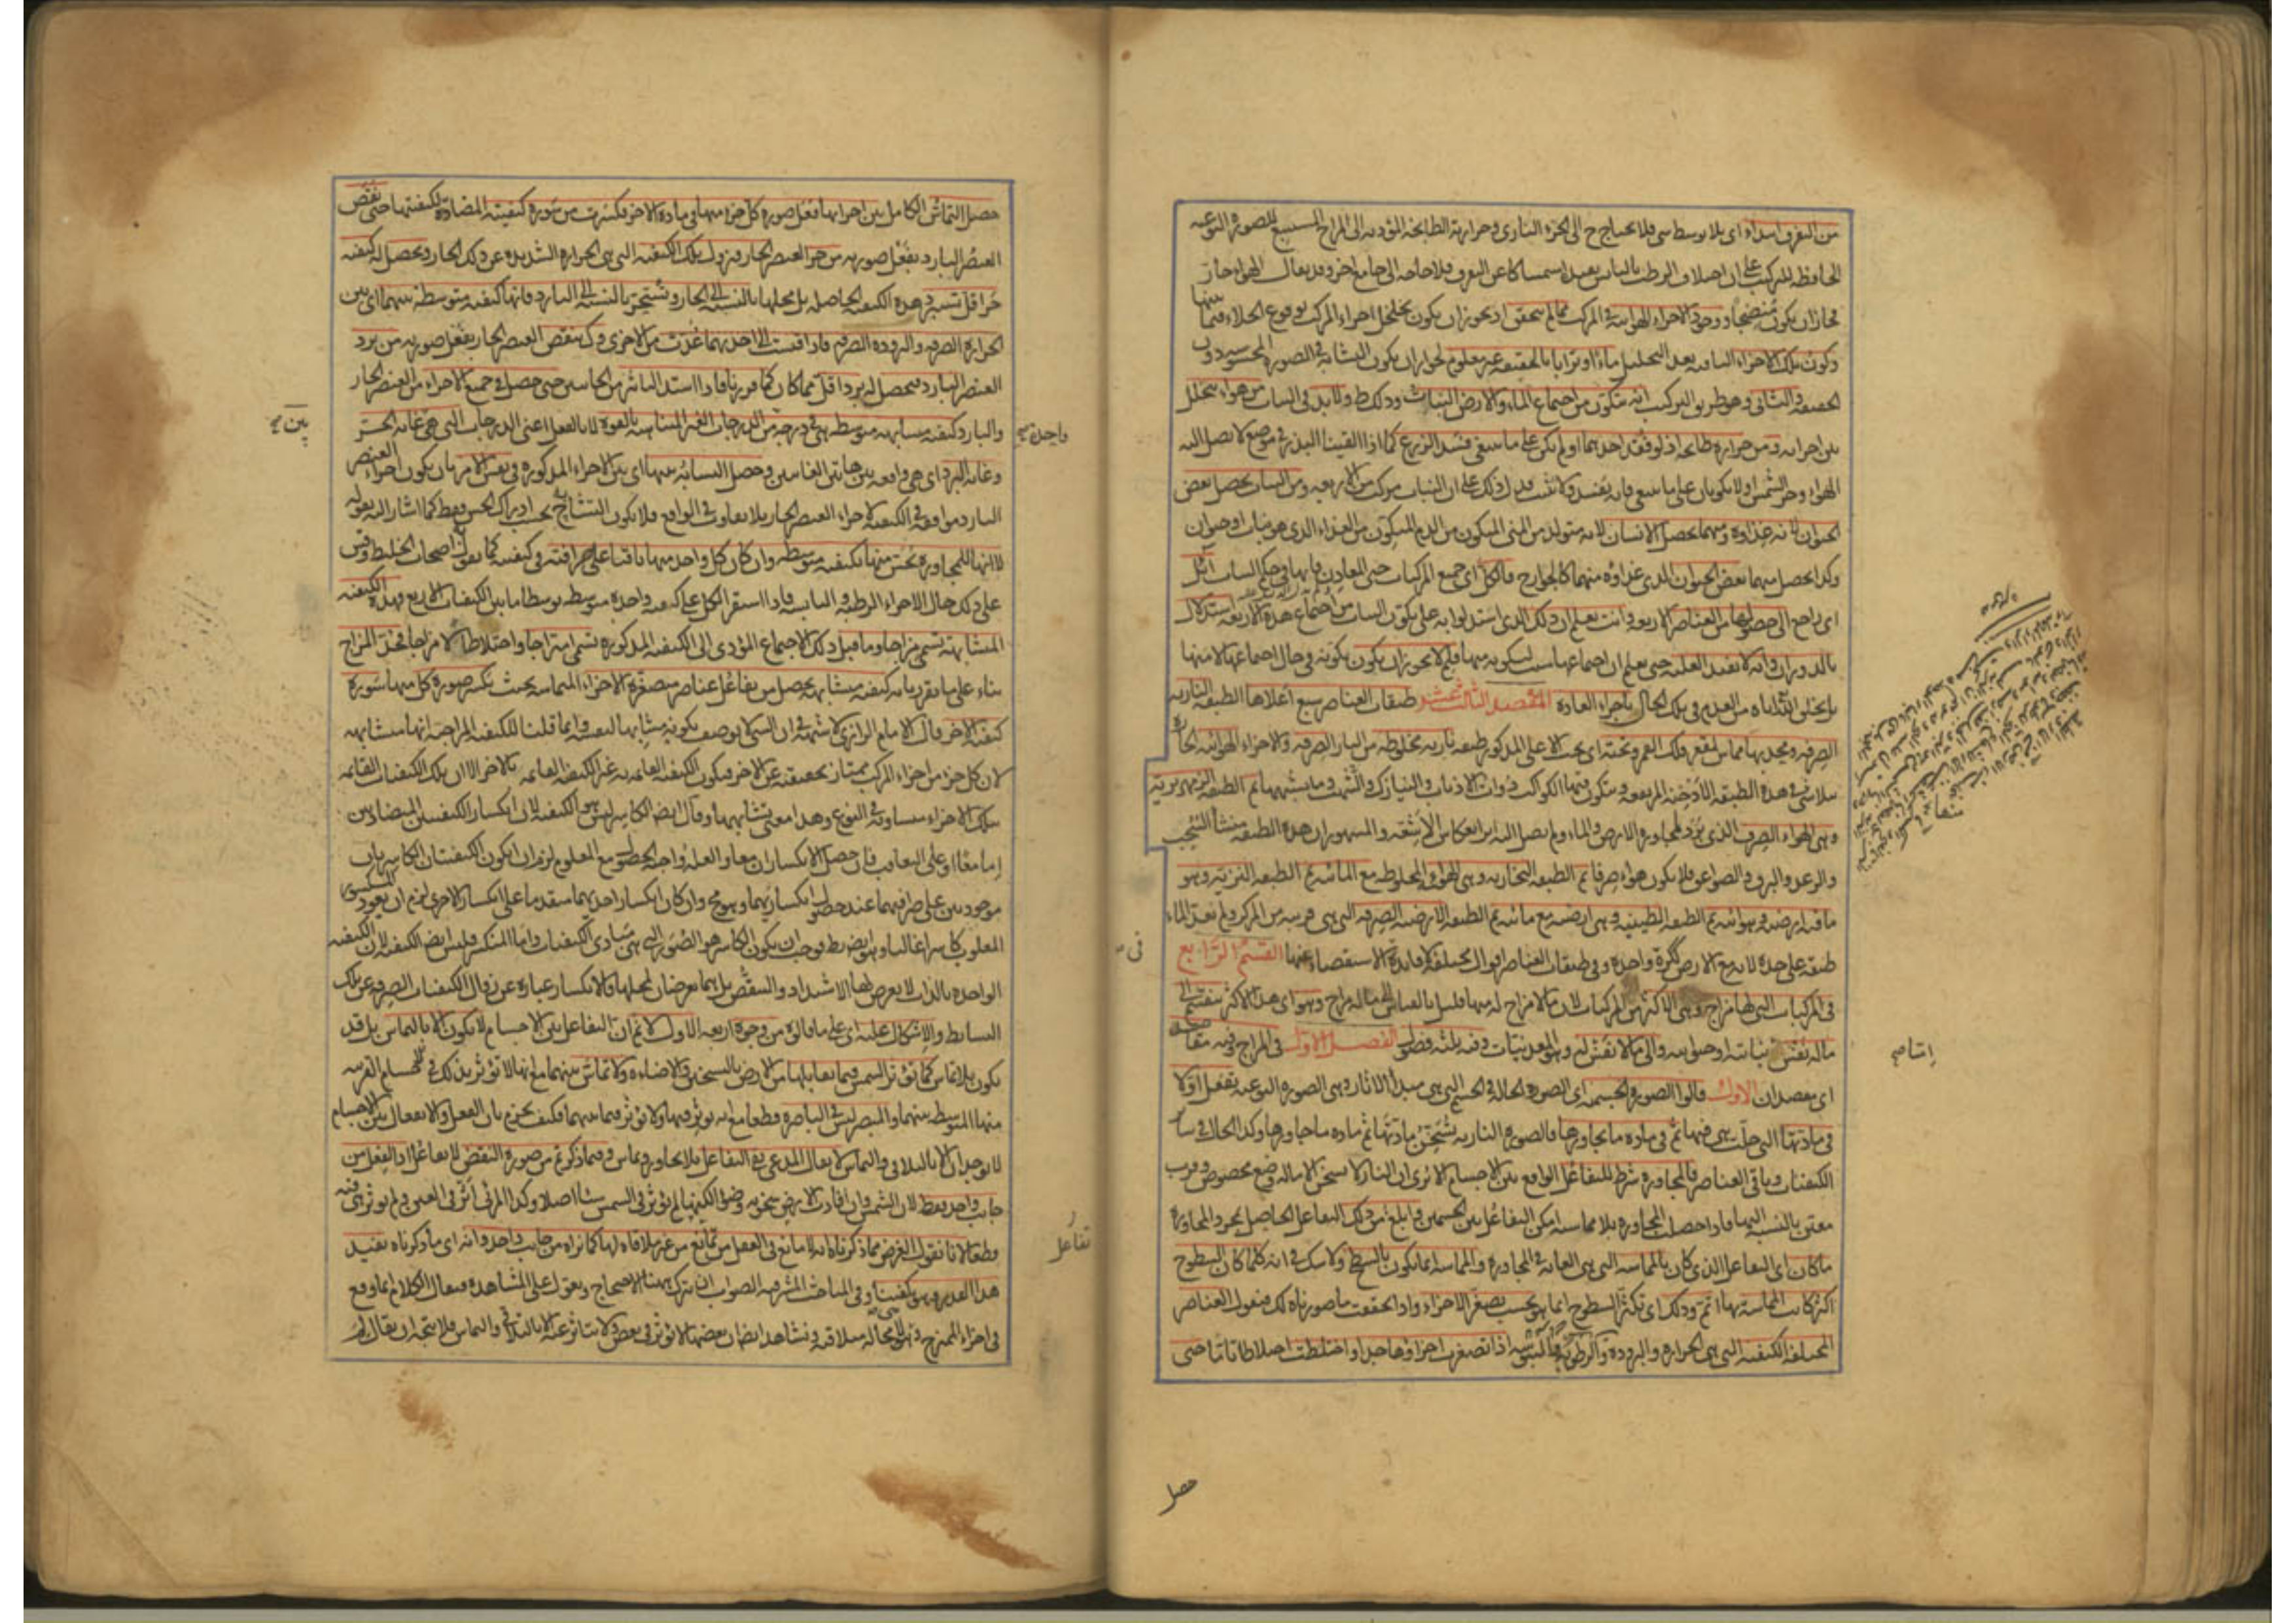 من التفرق ابتداء اي بلا توسط شي فلا يحتاج ح الى الجزء الناري وحرارته الطابخة المؤدية الى المزاج المستتبع للصورة النوعية
الحافظة للتركيب على ان اختلاط الرطب باليابس يفيد استمساكا عن التفرق فلا حاجة الى جامع اخر وقد يقال الهواء حار
فجاز ان يكون منضجا ووجود الاجزاء الهوائية في المركب مما لم يتحقق اذ يجوز ان يكون تخلخل اجزاء المركب بوقوع الخلاء فيما بينها
وكون تلك الاجزاء الباقية بعد التحليل ماء او ترابا بالحقيقة غير معلوم لجواز ان يكون التشابه في الصورة المحسوسة دون
الحقيقة والثاني وهو طريق التركيب انه يتكون من اجتماع الماء والارض النبات وذلك ظ ولا بد في النبات من هواء يتخلل
بين اجزائه ومن حرارة طابخة اذ لو فقد احدهما او لم يكن على ما ينبغي فسد الزرع كما اذا القينا البذر في موضع لا يصل اليه
الهواء وحر الشمس او لا يكونان على ما ينبغي فانه يفسد ولا ينبت فدل ذلك على ان النبات مركب من الاربعة ومن النبات يحصل بعض
الحيوان لانه غذاؤه ومنهما يحصل الانسان لانه متولد من المني المتكون من الدم المتكون من الغذاء الذي هو نبات او حيوان
وكذا يحصل منهما بعض الحيوان الذي غذاؤه منهما كالجوارح فالكل اي جميع المركبات حتى المعادن فانها في حكم النبات آئل
اي راجع الى حصولها من العناصر الاربعة وانت تعلم ان ذلك الذي استدلوا به على تكون النبات من اجتماع هذه الاربعة استدلال
بالدوران وانه لا يفيد العلية حتى يعلم ان اجتماعها سبب لتكونه منها فلم لا يجوز ان يكون تكونه في حال اجتماعها لا منها
بل بخلق الله اياه من العدم في تلك الحال باجراء العادة المقصد الثالث عشر طبقات العناصر سبع اعلاها الطبقة النارية
الصرفة ومحدبها مماس لمقعر فلك القمر وتحته اي تحت الاعلى المذكور طبقة نارية مخلوطة من النار الصرفة والاجزاء الهوائية الحارة
يتلاشى في هذه الطبقة الادخنة المرتفعة ويتكون فيها الكواكب ذوات الاذناب والنيازك والشهب وما يشبهها ثم الطبقة الزمهريرية
وهي الهواء الصرف الذي يبرد لمجاورة الارض والماء ولم يصل اليه اثر انعكاس الاشعة والمشهور ان هذه الطبقة منشأ السحب
والرعد والبرق والصواعق فلا يكون هواء صرفا ثم الطبقة البخارية وهي الهواء المخلوط مع المائية ثم الطبقة التربية وهو
ما فيه ارضية وهوائية ثم الطبقة الطينية وهي ارضية مع مائية ثم الطبقة الارضية الصرفة التي هي قريبة من المركز ولم يعد الماء
طبقة على حدة لانه مع الارض ككرة واحدة وفي طبقات العناصر اقوال مختلفة لا فائدة في الاستقصاء عنها القسم الرابع
في المركبات التي لها مزاج وهي الاكثر من المركبات لان ما لا مزاج له منها قليل بالقياس الى ما له مزاج وهو اي هذا الاكثر ينقسم الى
ما له نفس نباتية او حيوانية والى ما لا نفس له وهو المعدنيات وفيه ثلثة فصول الفصل الاول في المزاج وفيه مقاصد
اي مقصدان الاول قالوا الصورة الجسمية اي الصورة الحالة في الجسم التي هي مبدأ الاثار وهي الصورة النوعية تفعل اولا
في مادتها التي حلت هي فيها ثم في مادة ما يجاورها فالصورة النارية تسخن مادتها ثم مادة ما جاورها وكذا الحال في سائر
الكيفيات وباقي العناصر فالمجاورة شرط للتفاعل الواقع بين الاجسام الا ترى ان النار لا تسخن الا ما له وضع مخصوص وقرب
معين بالنسبة اليها فاذا حصل المجاورة بلا مماسة امكن التفاعل بين الجسمين وابلغ من ذلك التفاعل الحاصل بمجرد المجاورة
ما كان اي التفاعل الذي كان بالمماسة التي هي الغاية في المجاورة والمماسة انما يكون بالسطح ولا شك في انه كلما كان السطوح
اكثر كانت المماسة بها اتم وذلك اي تكثر السطوح انما هو بحسب تصغر الاجزاء واذا تحققت ما صورناه لك فنقول العناصر
المختلفة الكيفية التي هي الحرارة والبرودة والرطوبة واليبوسة اذا تصغرت اجزاؤها جدا واختلطت اختلاطا تاما حتى
اقسام
في
حصل
حصل التماس الكامل بين اجزائها فعل صورة كل جزء منها في مادة الاخر فكسرت من سورة كيفيته المضادة لكيفيتها حتى نقص
العنصر البارد بفعل صورته من حر العنصر الحار فتزول تلك الكيفية التي هي الحرارة الشديدة عن ذلك الحار ويحصل له كيفية
حر اقل تستبرد هذه الكيفية الحاصلة بل محلها بالنسبة الى الحار وتستحر بالنسبة الى البارد فانها كيفية متوسطة بينهما اي بين
الحرارة الصرفة والبرودة الصرفة فاذا قيست الى احديهما عدت من الاخرى وكذا ينقص العنصر الحار بفعل صورته من برد
العنصر البارد فيحصل له برد اقل مما كان كما قررناه فاذا استمد التأثير من الجانبين حتى حصل في جميع الاجزاء من العنصر الحار
والبارد كيفية متشابهة متوسطة هي في درجة من الدرجات الغير المتناهية بالقوة لا بالفعل اعني الدرجات التي هي غاية الحر
وغاية البرد اي هي واقعة بين هاتين الغايتين وحصل التشابه بينها اي بين الاجزاء المذكورة في نفس الامر بان يكون اجزاء العنصر
البارد موافقة في الكيفية لاجزاء العنصر الحار بلا تفاوت في الواقع فلا يكون التشابه بحسب ادراك الحس فقط كما اشار اليه بقوله
لا انها للمجاورة تحس منها بكيفية متوسطة وان كان كل واحد منها باقيا على صرافته في كيفيته كما يقوله اصحاب الخليط وقس
على ذلك حال الاجزاء الرطبة واليابسة فاذا استقر الكل على كيفية واحدة متوسطة توسطا ما بين الكيفيات الاربع فهذه الكيفية
المتشابهة تسمى مزاجا وما قبل ذلك الاجتماع المؤدي الى الكيفية المذكورة تسمى امتزاجا واختلاطا لا مزاجا فحد المزاج
بناء على ما تقرر بانه كيفية متشابهة يحصل من تفاعل عناصر متصغرة الاجزاء المتماسة بحيث يكسر صورة كل منها سورة
كيفية الاخر قال الامام الرازي لا شبهة في ان الشيء لا يوصف بكونه مشابها لنفسه وانما قلنا للكيفية المزاجية انها متشابهة
لان كل جزء من اجزاء المركب ممتاز بحقيقته عن الاخر فيكون الكيفية القائمة به غير الكيفية القائمة بالاخر الا ان تلك الكيفيات القائمة
بتلك الاجزاء متساوية في النوع وهذا معنى تشابهها وقال ايضا الكاسر ليس هو الكيفية لان انكسار الكيفيتين المتضادتين
اما معا او على التعاقب فان حصل الانكساران معا والعلة واجبة الحصول مع المعلول لزم ان يكون الكيفيتان الكاسرتان
موجودتين على صرافتهما عند حصول انكساريهما وهو مح وان كان انكسار احديهما متقدما على انكسار الاخرى لزم ان يعود المكسور
المغلوب كاسرا غالبا وهو ايضا بط فوجب ان يكون الكاسر هو الصورة التي هي مبادي الكيفيات واما المنكسر فليس ايضا الكيفية لان الكيفية
الواحدة بالذات لا يعرض لها الاشتداد والتنقص بل هما يعرضان لمحلها فالانكسار عبارة عن زوال الكيفيات الصرفة عن تلك
البسائط والاشكال عليه اي على ما قالوه من وجوه اربعة الاول لا نم ان التفاعل بين الاجسام لا يكون الا بالتماس بل قد
يكون بلا تماس كما تؤثر الشمس فيما يقابلها من الارض بالتسخين والاضاءة ولا تماس بينهما مع انها لا تؤثر بذلك في الاجسام القريبة
منها المتوسطة بينهما والمبصر ليس في الباصرة قطعا مع انه يؤثر فيها ولا يؤثر فيما بينهما فكيف يجزم بان الفعل والانفعال بين الاجسام
لا يوجدان الا بالتلاقي والتماس لا يقال المدعى نفي التفاعل بلا تجاور وتماس وفيما ذكرتم من صورة النقض لا تفاعل اذ الفعل من
جانب واحد فقط لان الشمس وان افادت الارض سخونة وضوءا لكنها لم تؤثر في الشمس شيئا اصلا وكذا المرئي اثر في العين ولم يؤثر هي فيه
قطعا لانا نقول الغرض مما ذكرناه انه لا مانع في العقل من تأثير من غير ملاقاة لها كما نراه من جانب واحد وانه اي ما ذكرناه يفيد
هذا القدر وهو يكفينا وفي المباحث المشرقية الصواب ان يترك ههنا الاحتجاج ويعول على المشاهدة فيقال الكلام انما وقع
في اجزاء الممتزج وهي لا محالة متلاقية ونشاهد ايضا ان بعضها لا يؤثر في بعض ولا يتأثر عنه الا بالتلاقي والتماس فلا يتجه ان يقال لم
واحدة
بين
تفاعل